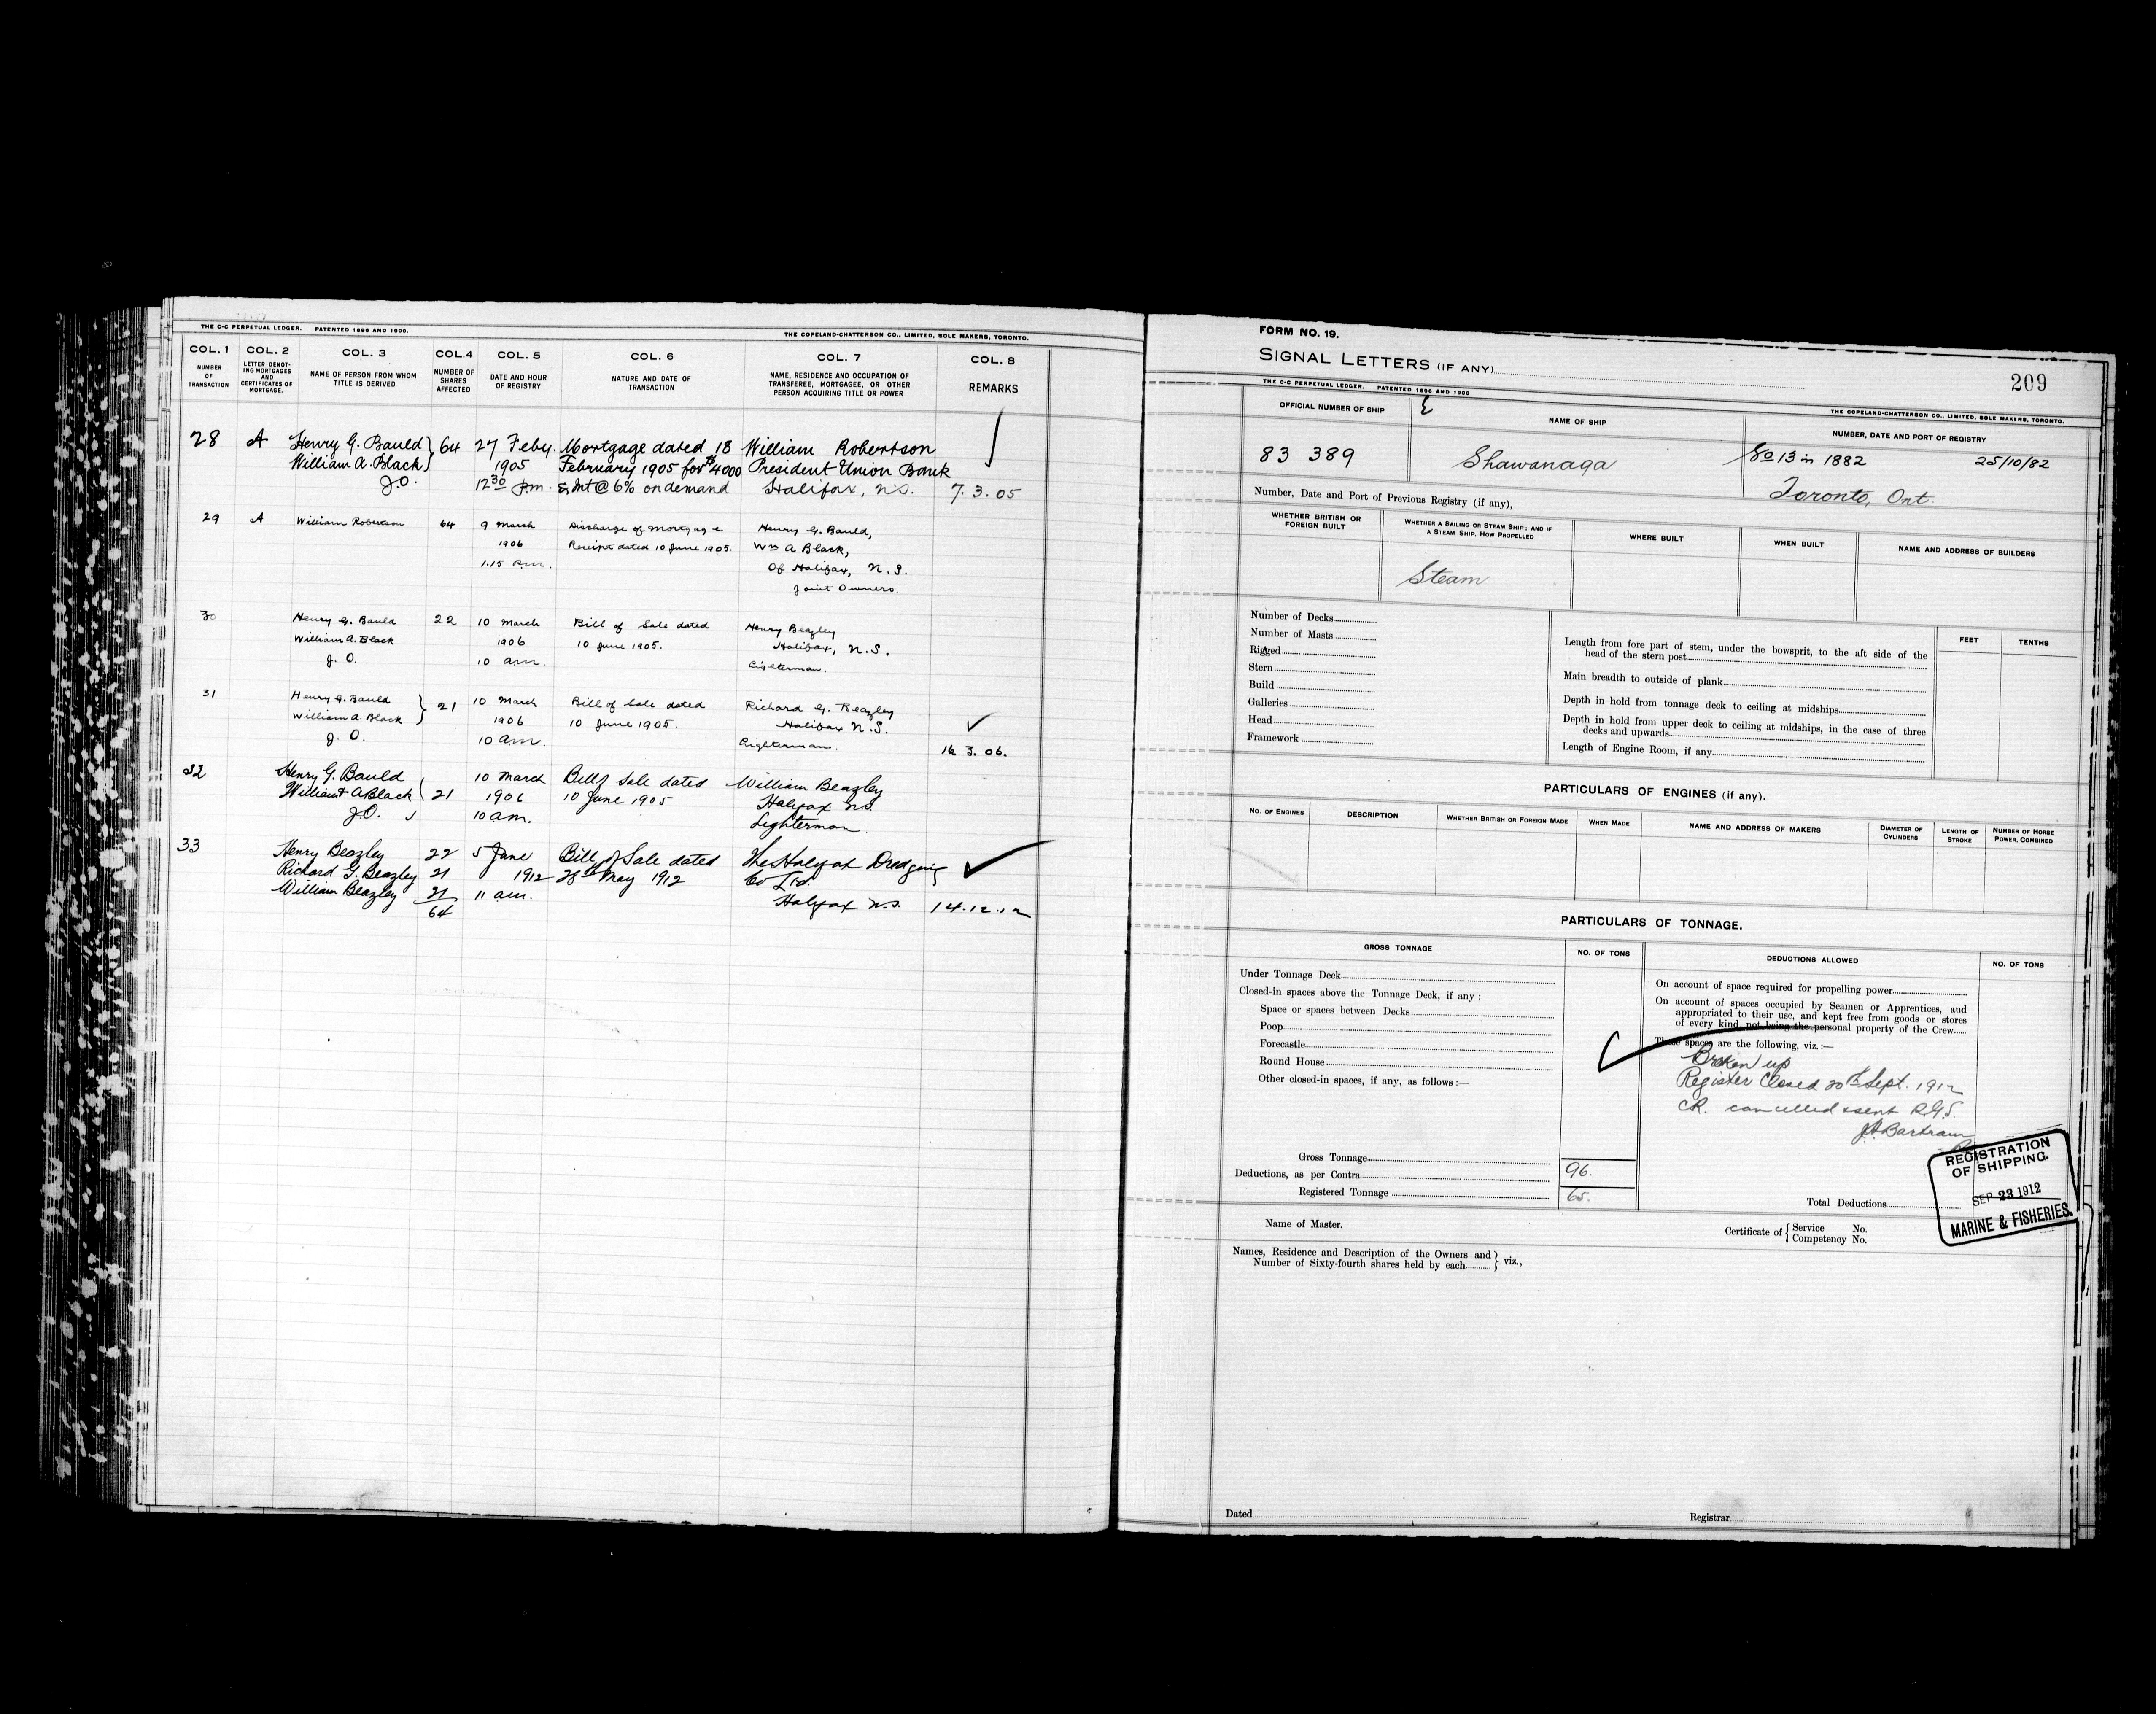 THE C-C PERPETUAL LEDGER. PATENTED 1896 AND 1900.
THE COPELAND-CHATTERSON CO., LIMITED, SOLE MAKERS, TORONTO.
COL. 1 COL. 2 COL. 3 COL.4 COL. 5 COL. 6 COL. 7 COL. 8
NUMBER OF TRANSACTION
LETTER DENOT-ING MORTGAGES AND CERTIFICATES OF MORTGAGE.
NAME OF PERSON FROM WHOM TITLE IS DERIVED
NUMBER OF SHARES AFFECTED
DATE AND HOUR OF REGISTRY
NATURE AND DATE OF TRANSACTION
NAME, RESIDENCE AND OCCUPATION OF TRANSFEREE, MORTGAGEE, OR OTHER PERSON ACQUIRING TITLE OR POWER
REMARKS
28 A Henry G. Bauld } 64 27 Feby. Mortgage dated 18 William Robertson
William A. Black 1905 February 1905 for $4000 President Union Bank
J.O. 12 30 p.m. & Int @ 6% on demand Halifax, N.S. 7.3.05
29 A William Robertson 64 9 March Discharge of Mortgage Henry G. Bauld,
1906 Receipt dated 10 June 1905. Wm A Black,
1.15 P.m. Of Halifax, N.S.
Joint Owners.
30 Henry G. Bauld 22 10 March Bill of Sale dated Henry Beazley
William A. Black 1906 10 June 1905. Halifax, N.S.
J. O. 10 am. Lighterman.
31 Henry G. Bauld } 21 10 March Bill of Sale dated Richard G. Beazley
William A. Black 1906 10 June 1905. Halifax N.S.
J. O. 10 am. Lighterman. 16.3.06.
32 Henry G. Bauld 10 March Bill of Sale dated William Beazley
William A Black 21 1906 10 June 1905 Halifax N.S.
J.O. 10 am. Lighterman.
33 Henry Beazley 22 5 June Bill of Sale dated The Halifax Dredging
Richard G. Beazley 21 1912 May 1912 Co Ltd.
William Beazley 21 11 am. Halifax N.S. 14.12.12
64
FORM NO. 19.
SIGNAL LETTERS (IF ANY)
209
THE C-C PERPETUAL LEDGER. PATENTED 1896 AND 1900
THE COPELAND-CHATTERSON CO., LIMITED, SOLE MAKERS, TORONTO.
OFFICIAL NUMBER OF SHIP
NAME OF SHIP
NUMBER, DATE AND PORT OF REGISTRY
83 389 Shawanaga No 13 in 1882 25/10/82
Toronto, Ont.
Number, Date and Port of Previous Registry (if any),
WHETHER BRITISH OR FOREIGN BUILT
WHETHER A SAILING OR STEAM SHIP; AND IF A STEAM SHIP, HOW PROPELLED
WHERE BUILT
WHEN BUILT
NAME AND ADDRESS OF BUILDERS
Steam
Number of Decks
Number of Masts
Rigged
Stern
Build
Galleries
Head
Framework
FEET TENTHS
Length from fore part of stem, under the bowsprit, to the aft side of the
head of the stern post
Main breadth to outside of plank
Depth in hold from tonnage deck to ceiling at midships
Depth in hold from upper deck to ceiling at midships, in the case of three
decks and upwards
Length of Engine Room, if any
PARTICULARS OF ENGINES (if any).
NO. OF ENGINES
DESCRIPTION
WHETHER BRITISH OR FOREIGN MADE
WHEN MADE
NAME AND ADDRESS OF MAKERS
DIAMETER OF CYLINDERS
LENGTH OF STROKE
NUMBER OF HORSE POWER, COMBINED
PARTICULARS OF TONNAGE.
GROSS TONNAGE
NO. OF TONS
DEDUCTIONS ALLOWED
NO. OF TONS
Under Tonnage Deck
Closed-in spaces above the Tonnage Deck, if any :
Space or spaces between Decks
Poop
Forecastle
Round House
Other closed-in spaces, if any, as follows :—
Gross Tonnage 96.
Deductions, as per Contra
Registered Tonnage 65.
On account of space required for propelling power
On account of spaces occupied by Seamen or Apprentices, and
appropriated to their use, and kept free from goods or stores
of every kind, not being the personal property of the Crew
These spaces are the following, viz.:—
Broken up
Register Closed 20th Sept. 1912
CR. cancelled & sent R.G.S.
JA Bartram
Total Deductions
REGISTRATION
OF SHIPPING.
SEP 23 1912
MARINE & FISHERIES.
Name of Master.
Certificate of { Service No.
Competency No.
Names, Residence and Description of the Owners and
Number of Sixty-fourth shares held by each } viz.,
Dated
Registrar